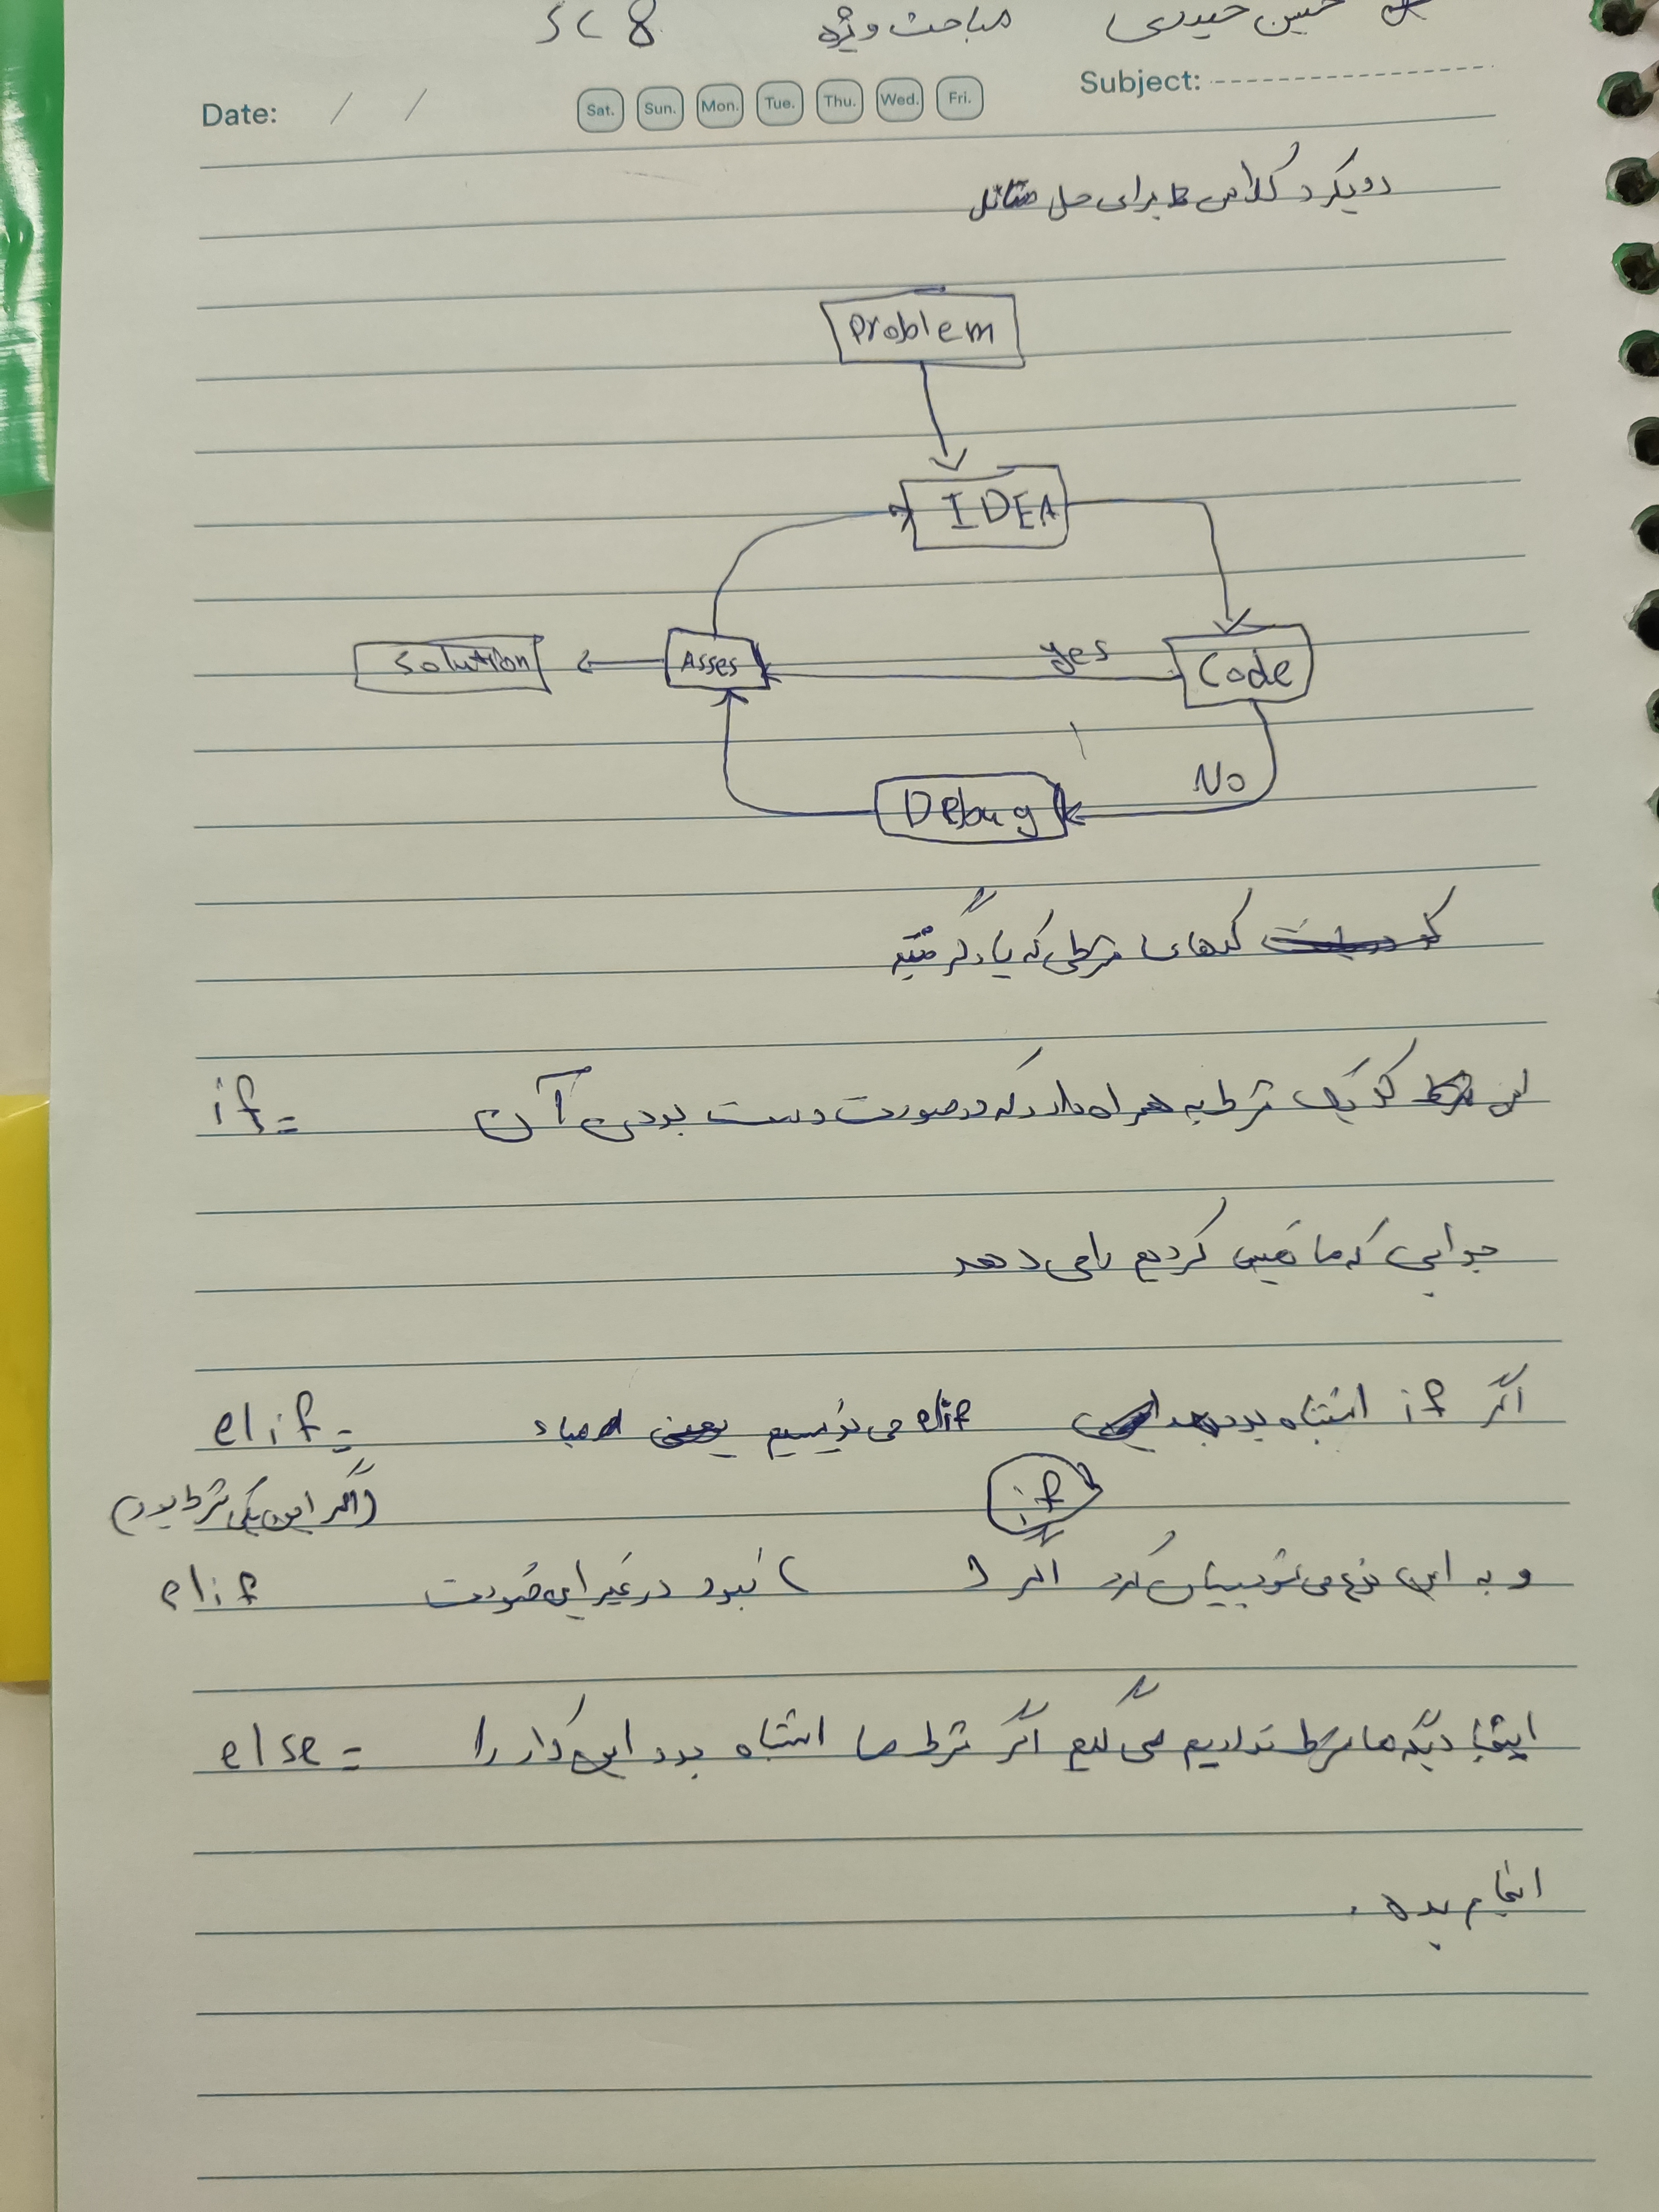 حسین حیدری مباحث ویژه SC 8
Subject:
Date: / / Sat. Sun. Mon. Tue. Thu. Wed. Fri.
رویکرد کلاس ما برای حل مسائل
Problem
IDEA
Solution Asses yes Code
No
Debug
کدهای شرطی که یاد گرفتیم
if = این کد یک شرط به همراه دارد که در صورت درست بودن آن
جوابی که ما تعیین کردیم را می دهد
elif = اگر if اشتباه بود elif می نویسیم
if
(اگر این یکی شرط بود)
elif و به این نوع می شود بیان کرد اگر ( ) نبود در غیر این صورت
else = اینجا دیگه ما شرط نداریم می گیم اگر شرط ما اشتباه بود این کار را
انجام بده .